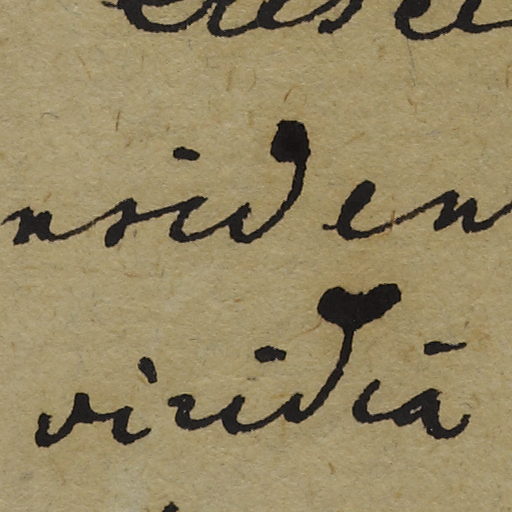 nsiden
viridiā